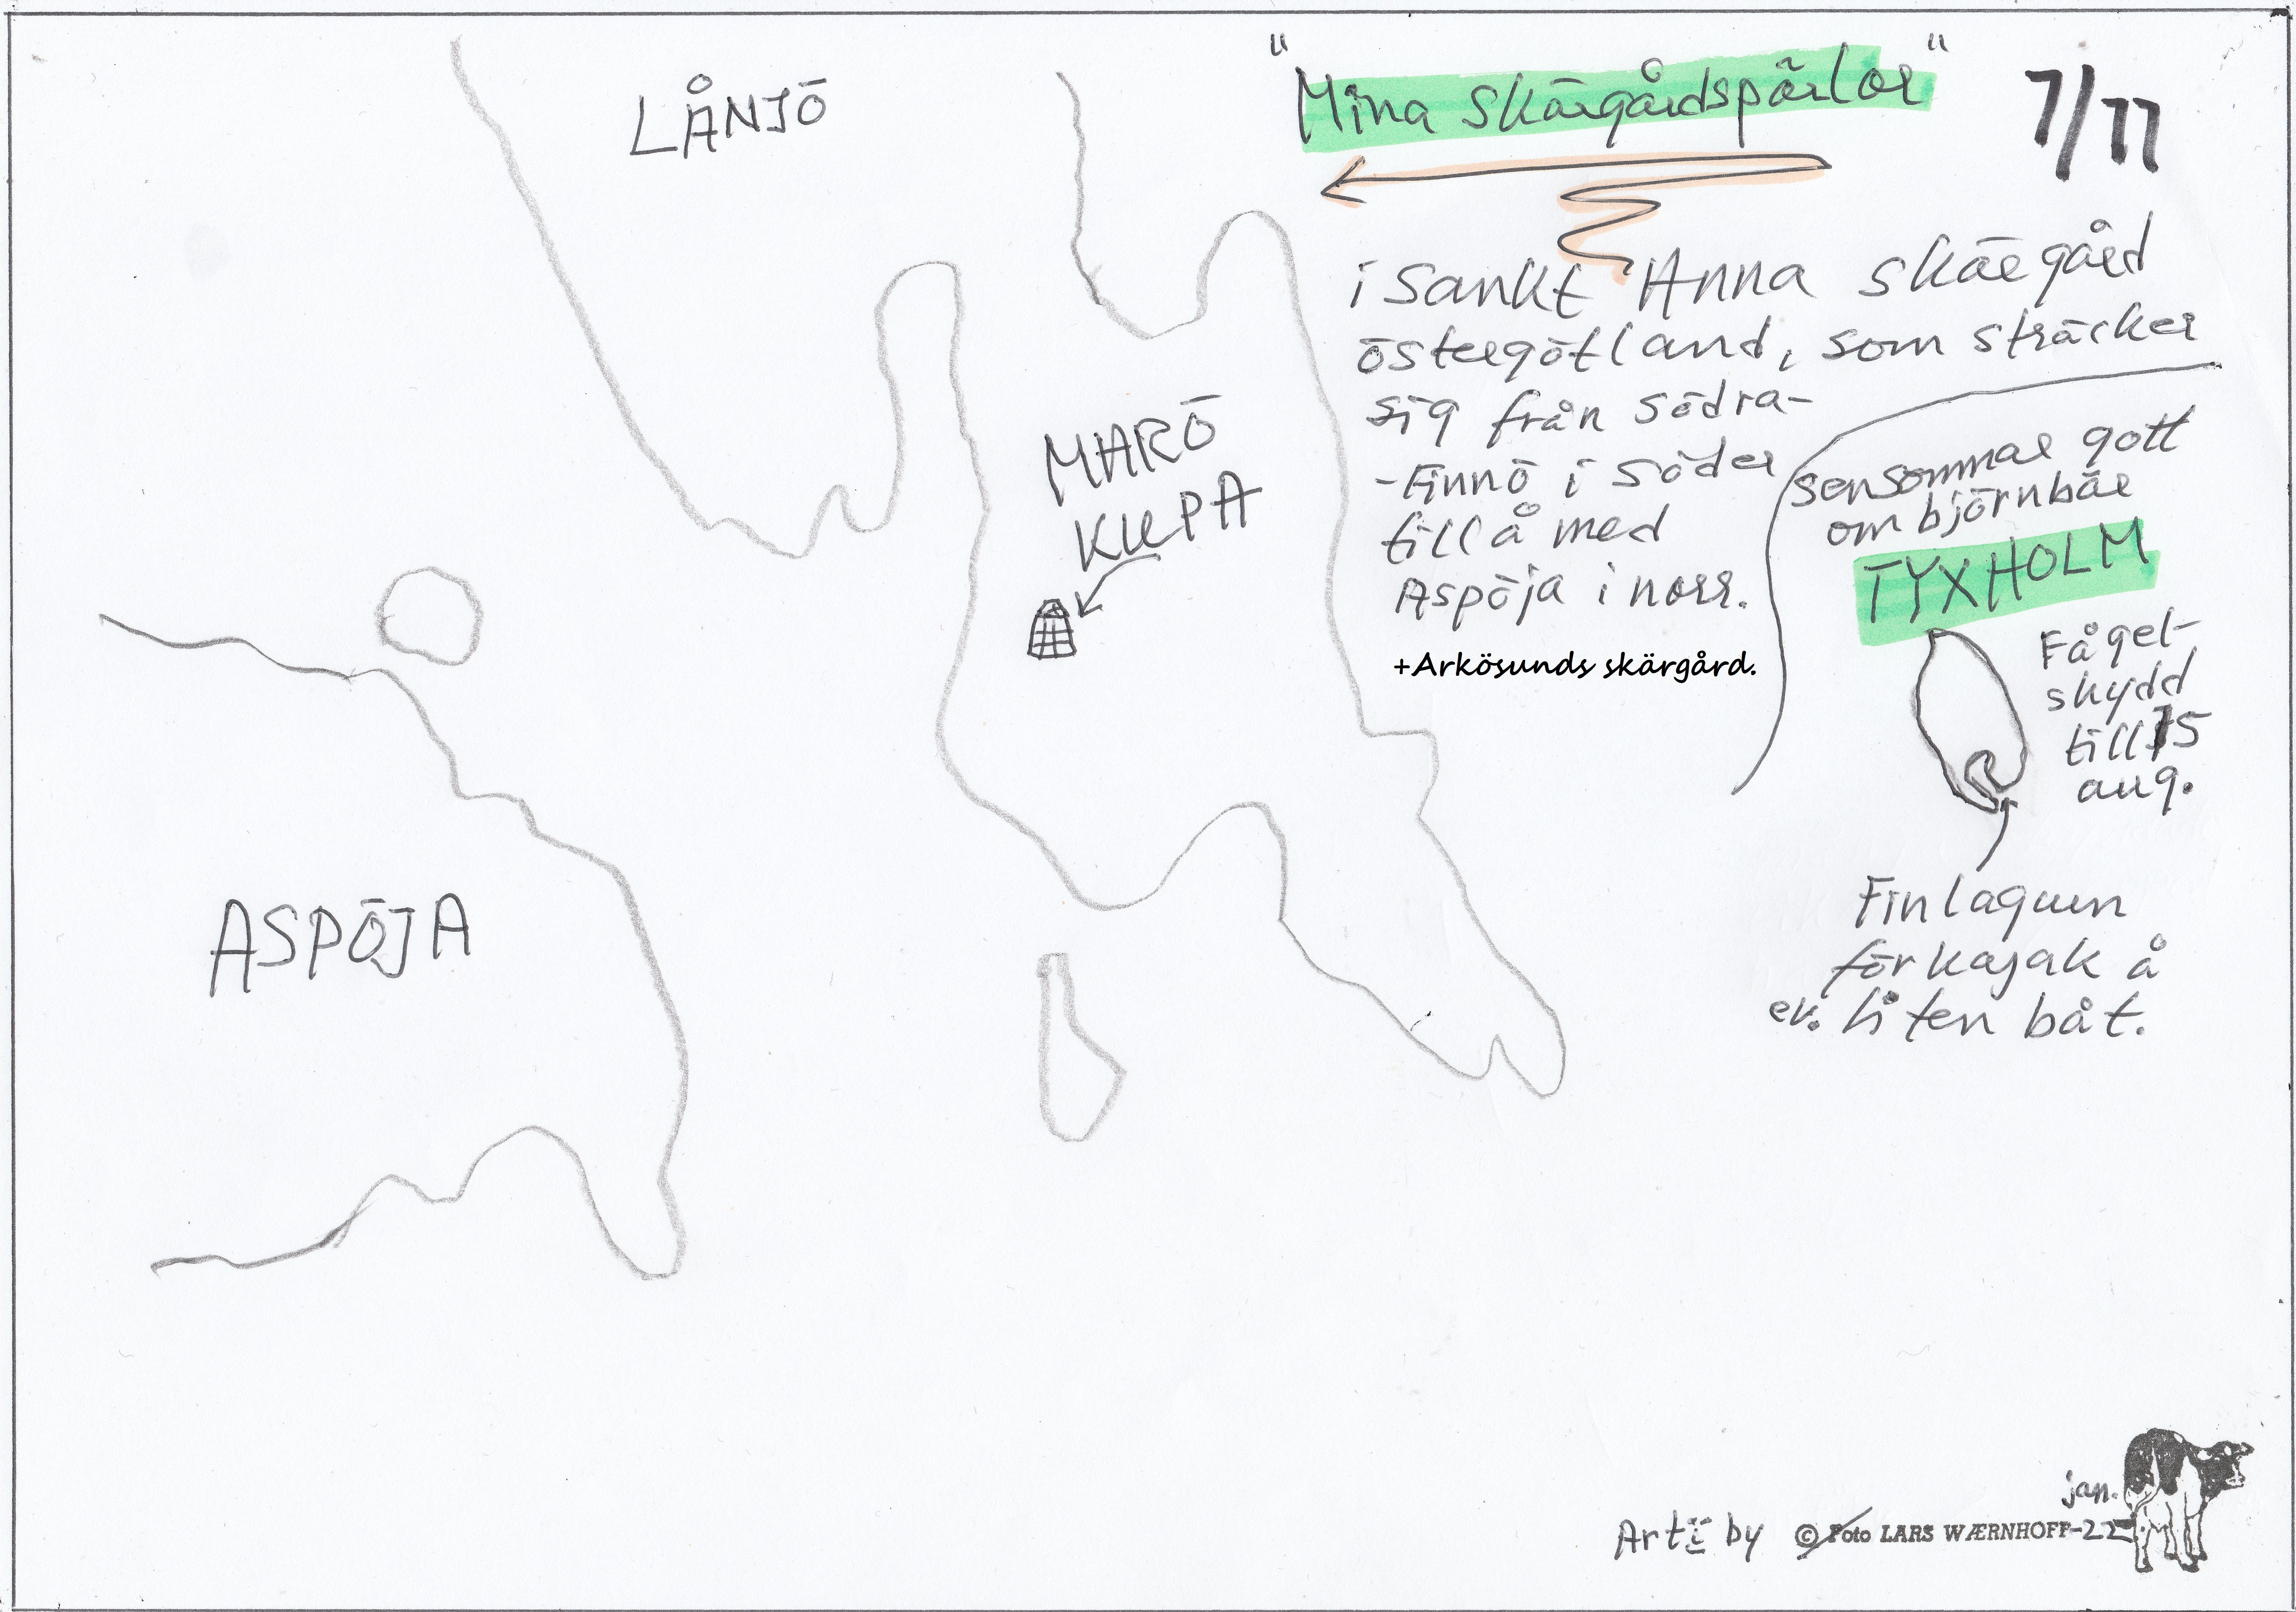 "Mina skärgårdspärlor"
7/11
i Sankt Anna skärgård
östergötland, som sträcker
sig från södra-
-Finnö i söder
till å med
Aspöja i norr.
+Arkösunds skärgård.
sensommar gott
om björnbär
TYXHOLM
Fågel-
skydd
till 15
aug.
Fin lagun
för kajak å
ev. liten båt.
LÅNJÖ
MARÖ
KUPA
ASPÖJA
jan.
Art by © Foto LARS WÆRNHOFF-22